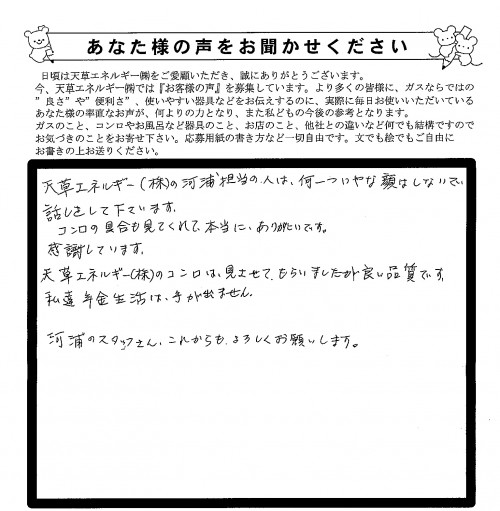 あなた様の声をお聞かせください
日頃は天草エネルギー㈱をご愛顧いただき、誠にありがとうございます。
今、天草エネルギー㈱では『お客様の声』を募集しています。より多くの皆様に、ガスならではの
”良さ”や”便利さ”、使いやすい器具などをお伝えするのに、実際に毎日お使いいただいている
あなた様の率直なお声が、何よりの力となり、また私どもの今後の参考となります。
ガスのこと、コンロやお風呂など器具のこと、お店のこと、他社との違いなど何でも結構ですので
お気づきのことをお寄せ下さい。応募用紙の書き方など一切自由です。文でも絵でもご自由に
お書きの上お送りください。
天草エネルギー(株)の河浦担当の人は、何一ついやな顔はしないで、
話しをして下さいます。
コンロの具合も見てくれて、本当に、ありがたいです。
感謝しています。
天草エネルギー(株)のコンロは、見させて、もらいましたが良い品質です。
私達年金生活は、手が出ません。
河浦のスタッフさん、これからも、よろしくお願いします。